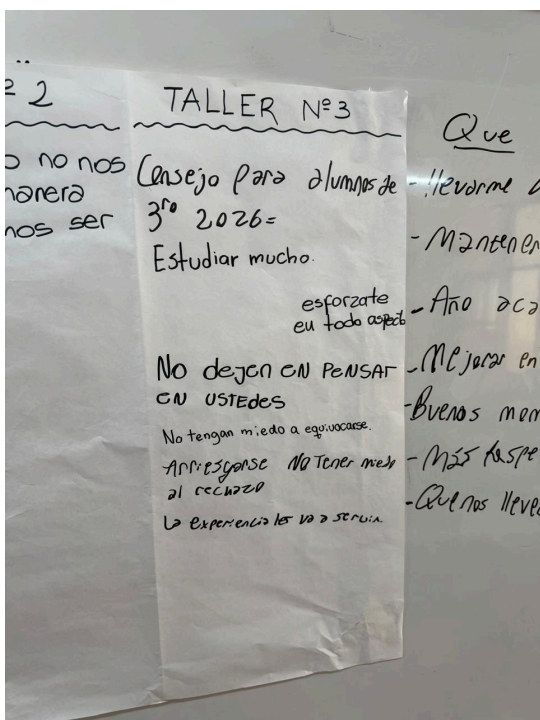 º 2
no nos
manera
mos ser
TALLER Nº3
Consejo para alumnos de
3ro 2026=
Estudiar mucho.
esforzate
eu todo aspecto
No dejen EN PENSAR
EN USTEDES
No tengan miedo a equivocarse.
Arriesgarse No Tener miedo
al rechazo
La experiencia les va a servir.
Que
- llevarme
- Mantener
- Año aca
- Mejorar en
- Buenos mom
- Más respe
- Que nos lleve